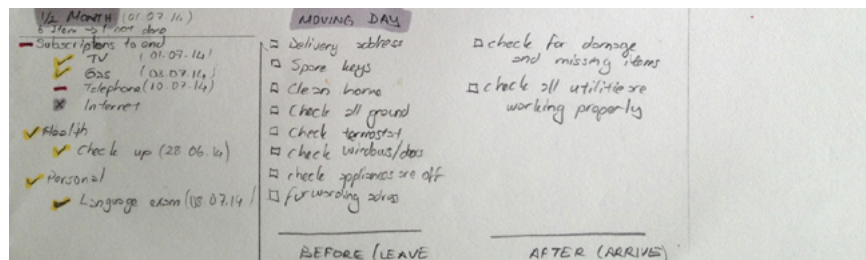 1/2 MONTH (01.07.14)
6 Item → 1 not done
Subscriptions to end
TV (01.07.14)
Gas (03.07.14)
Telephone (10.07.14)
Internet
Health
Check up (28.06.14)
Personal
Language exam (03.07.14)
MOVING DAY
Delivery address
Spare keys
Clean home
Check all ground
Check termostat
Check windows/doors
check appliances are off
forwarding adres
BEFORE (LEAVE
check for damage
and missing items
check all utilities are
working properly
AFTER (ARRIVE)